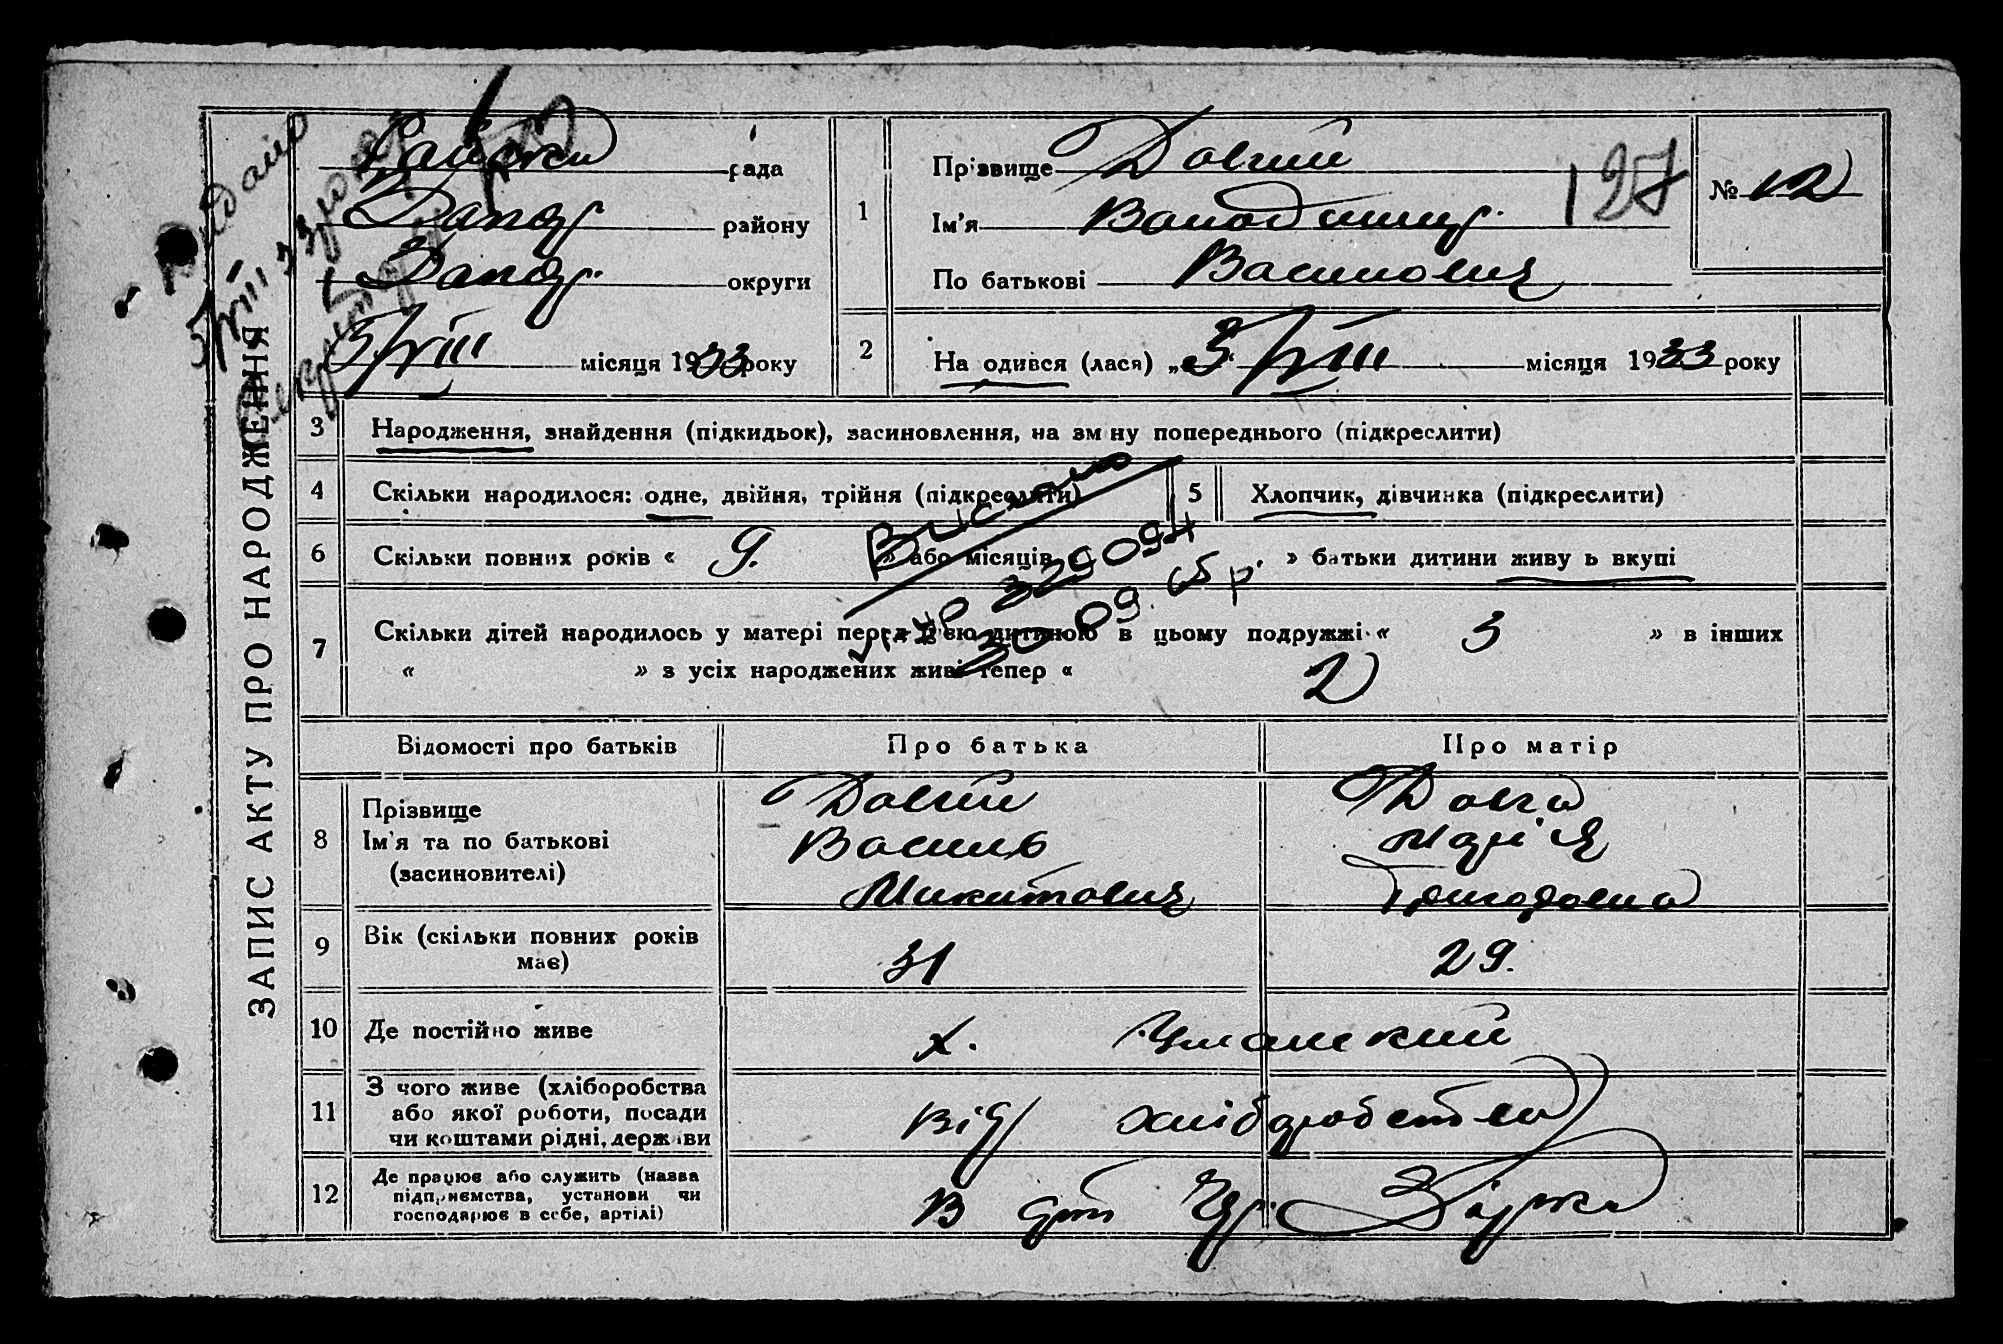 ЗАПИС АКТУ ПРО НАРОДЖЕННЯ
рада
Запор району
Запор. округи
5/VIII місяця 1933 року
1
Прізвище Довгий
Ім'я Володимир.
По батькові Василович
127
№ 12
2
На одився (лася) „5“ /VIII місяця 1933 року
3 Народження, знайдення (підкидьок), засиновлення, на зм ну попереднього (підкреслити)
4 Скільки народилося: одне, двійня, трійня (підкреслити)
5 Хлопчик, дівчинка (підкреслити)
6 Скільки повних років « 9. » або місяців » батьки дитини живу ь вкупі
Вислано
329094
30 09. 65 р.
7 Скільки дітей народилось у матері перед цією дитиною в цьому подружжі « 3 » в інших
« » з усіх народжених живі тепер « 2
Відомості про батьків Про батька Про матір
8 Прізвище
Ім'я та по батькові
(засиновителі)
Довгий
Василь
Микитович
Довга
Марія
Григоровна
9 Вік (скільки повних років
має)
31
29.
10 Де постійно живе
х. Уманский
11 З чого живе (хліборобства
або якої роботи, посади
чи коштами рідні, держави
від хліборобства
12 Де працює або служить (назва
підприємства, установи чи
господарює в себе, артілі)
В арт Чер. Зірка